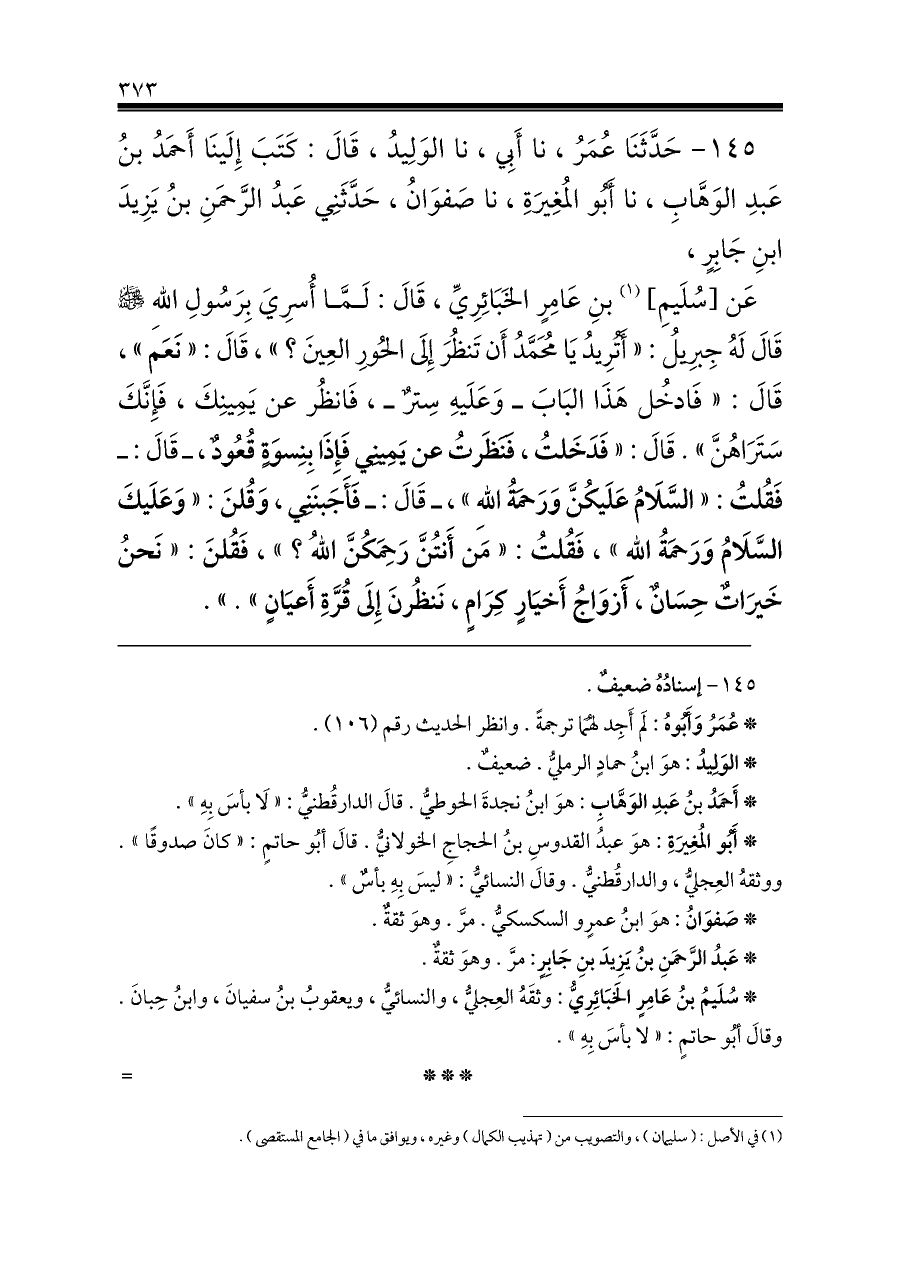 ٣٧٣
١٤٥- حَدَّثَنَا عُمَرُ ، نا أَبِي ، نا الوَلِيدُ ، قَالَ : كَتَبَ إِلَينَا أَحمَدُ بنُ
عَبدِ الوَهَّابِ ، نا أَبُو المُغِيرَةِ ، نا صَفوَانُ ، حَدَّثَنِي عَبدُ الرَّحمَنِ بنُ يَزِيدَ
ابنِ جَابِرٍ ،
عَن [سُلَيمِ] (١) بنِ عَامِرٍ الخَبَائِرِيِّ ، قَالَ : لَـمَّـا أُسرِيَ بِرَسُولِ اللهِ ﷺ
قَالَ لَهُ جِبرِيلُ : « أَتُرِيدُ يَا مُحَمَّدُ أَن تَنظُرَ إِلَى الحُورِ العِينَ ؟ » ، قَالَ : « نَعَم » ،
قَالَ : « فَادخُل هَذَا البَابَ ـ وَعَلَيهِ سِترٌ ـ ، فَانظُر عن يَمِينِكَ ، فَإِنَّكَ
سَتَرَاهُنَّ » . قَالَ : « فَدَخَلتُ ، فَنَظَرتُ عن يَمِينِي فَإِذَا بِنِسوَةٍ قُعُودٌ ، ـ قَالَ : ـ
فَقُلتُ : « السَّلَامُ عَلَيكُنَّ وَرَحمَةُ الله » ، ـ قَالَ : ـ فَأَجَبنَنِي ، وَقُلنَ : « وَعَلَيكَ
السَّلَامُ وَرَحمَةُ الله » ، فَقُلتُ : « مَن أَنتُنَّ رَحِمَكُنَّ اللهُ ؟ » ، فَقُلنَ : « نَحنُ
خَيرَاتٌ حِسَانٌ ، أَزوَاجُ أَخيَارٍ كِرَامٍ ، نَنظُرنَ إِلَى قُرَّةِ أَعيَانٍ » . » .
١٤٥- إسنادُهُ ضعيفٌ .
* عُمَرُ وَأَبُوهُ : لَم أَجِد لهُمَا ترجمةً . وانظر الحديث رقم (١٠٦) .
* الوَلِيدُ : هوَ ابنُ حمادٍ الرمليُّ . ضعيفٌ .
* أَحمَدُ بنُ عَبدِ الوَهَّابِ : هوَ ابنُ نجدةَ الحوطيُّ . قالَ الدارقُطنيُّ : « لَا بأسَ بِهِ » .
* أَبُو المُغِيرَةِ : هوَ عبدُ القدوسِ بنُ الحجاجِ الخولانيُّ . قالَ أبُو حاتمٍ : « كانَ صدوقًا » .
ووثقهُ العِجليُّ ، والدارقُطنيُّ . وقالَ النسائيُّ : « ليسَ بِهِ بأسٌ » .
* صَفوَانُ : هوَ ابنُ عمرٍو السكسكيُّ . مرَّ . وهوَ ثقةٌ .
* عَبدُ الرَّحمَنِ بنُ يَزِيدَ بنِ جَابِرٍ : مرَّ . وهوَ ثقةٌ .
* سُلَيمُ بنُ عَامِرٍ الخَبَائِرِيُّ : وثقَهُ العِجليُّ ، والنسائيُّ ، ويعقوبُ بنُ سفيانَ ، وابنُ حِبانَ .
وقالَ أبُو حاتمٍ : « لا بأسَ بِهِ » .
* * * =
(١) في الأصل : ( سليمان ) ، والتصويب من ( تهذيب الكمال ) وغيره ، ويوافق ما في ( الجامع المستقصى ) .